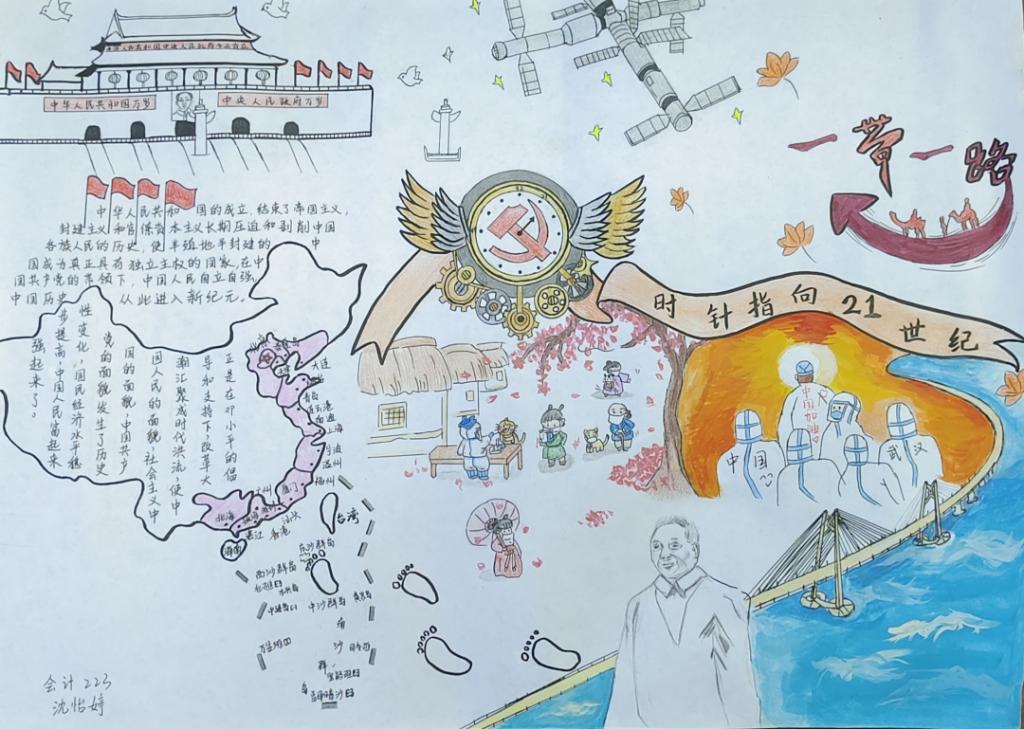 中华人民共和国中央人民政府今天成立
中华人民共和国万岁
中央人民政府万岁
一带一路
中华人民共和国的成立，结束了帝国主义，
封建主义和官僚资本主义长期压迫和剥削中国
各族人民的历史，使半殖地半封建的中
国成为真正具有独立主权的国家，在中
国共产党的带领下，中国人民自立自强，
中国历史从此进入新纪元。
时针指向21世纪
正是在邓小平的倡
导和支持下，改革大
潮汇聚成时代洪流，使中
国人民的面貌，社会主义中
国的面貌，中国共产
党的面貌发生了历史
性变化，国民经济水平稳
步提高，中国人民富起来
强起来了。
大连
青岛
连云港
南通
上海
宁波
温州
福州
厦门
广州
汕头
香港
湛江
北海
海南
台湾
东沙群岛
西沙群岛
中沙群岛
南
沙
群
岛
中国加油
中国
武汉
会计223
沈怡婷